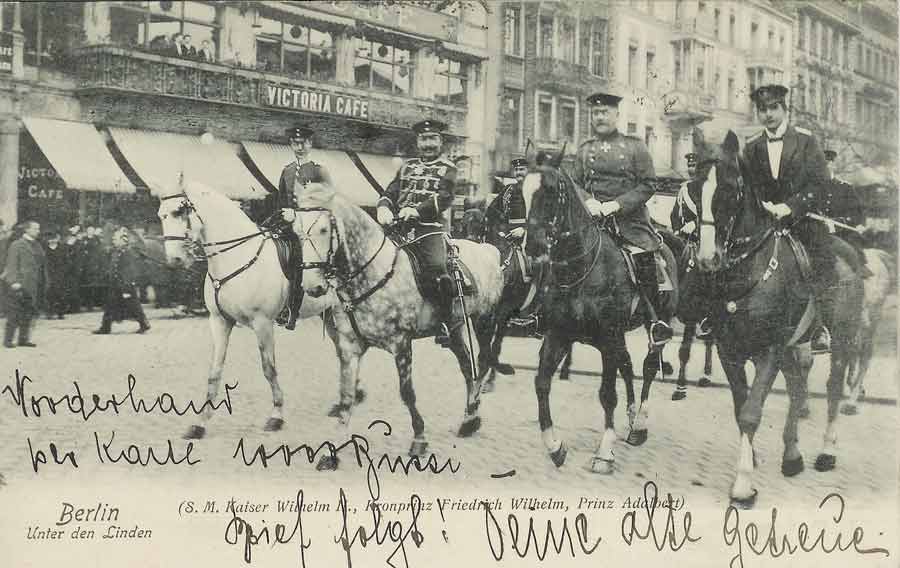 VICTORIA CAFE
VICTORIA
CAFE
Vorderhand
per Karte Bussi –
Berlin
Unter den Linden
(S. M. Kaiser Wilhelm II., Kronprinz Friedrich Wilhelm, Prinz Adalbert)
Brief folgt! Deine alte Getreue